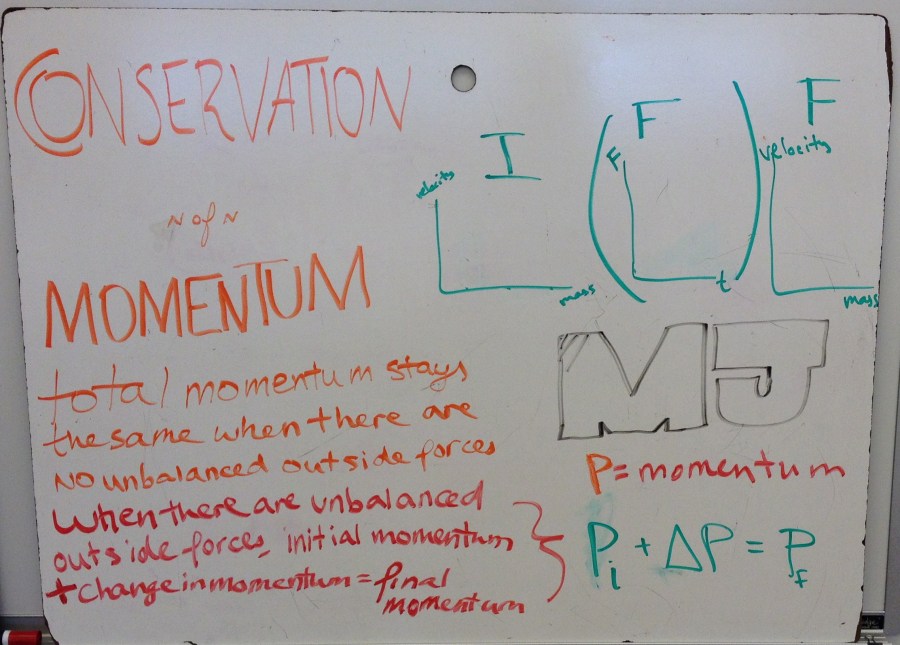 CONSERVATION
~ of ~
MOMENTUM
total momentum stays
the same when there are
NO unbalanced outside forces
When there are unbalanced
outside forces, initial momentum
+ change in momentum = final
momentum
I
velocity
mass
F
F
t
F
velocity
mass
MJ
P = momentum
Pi + ΔP = PF